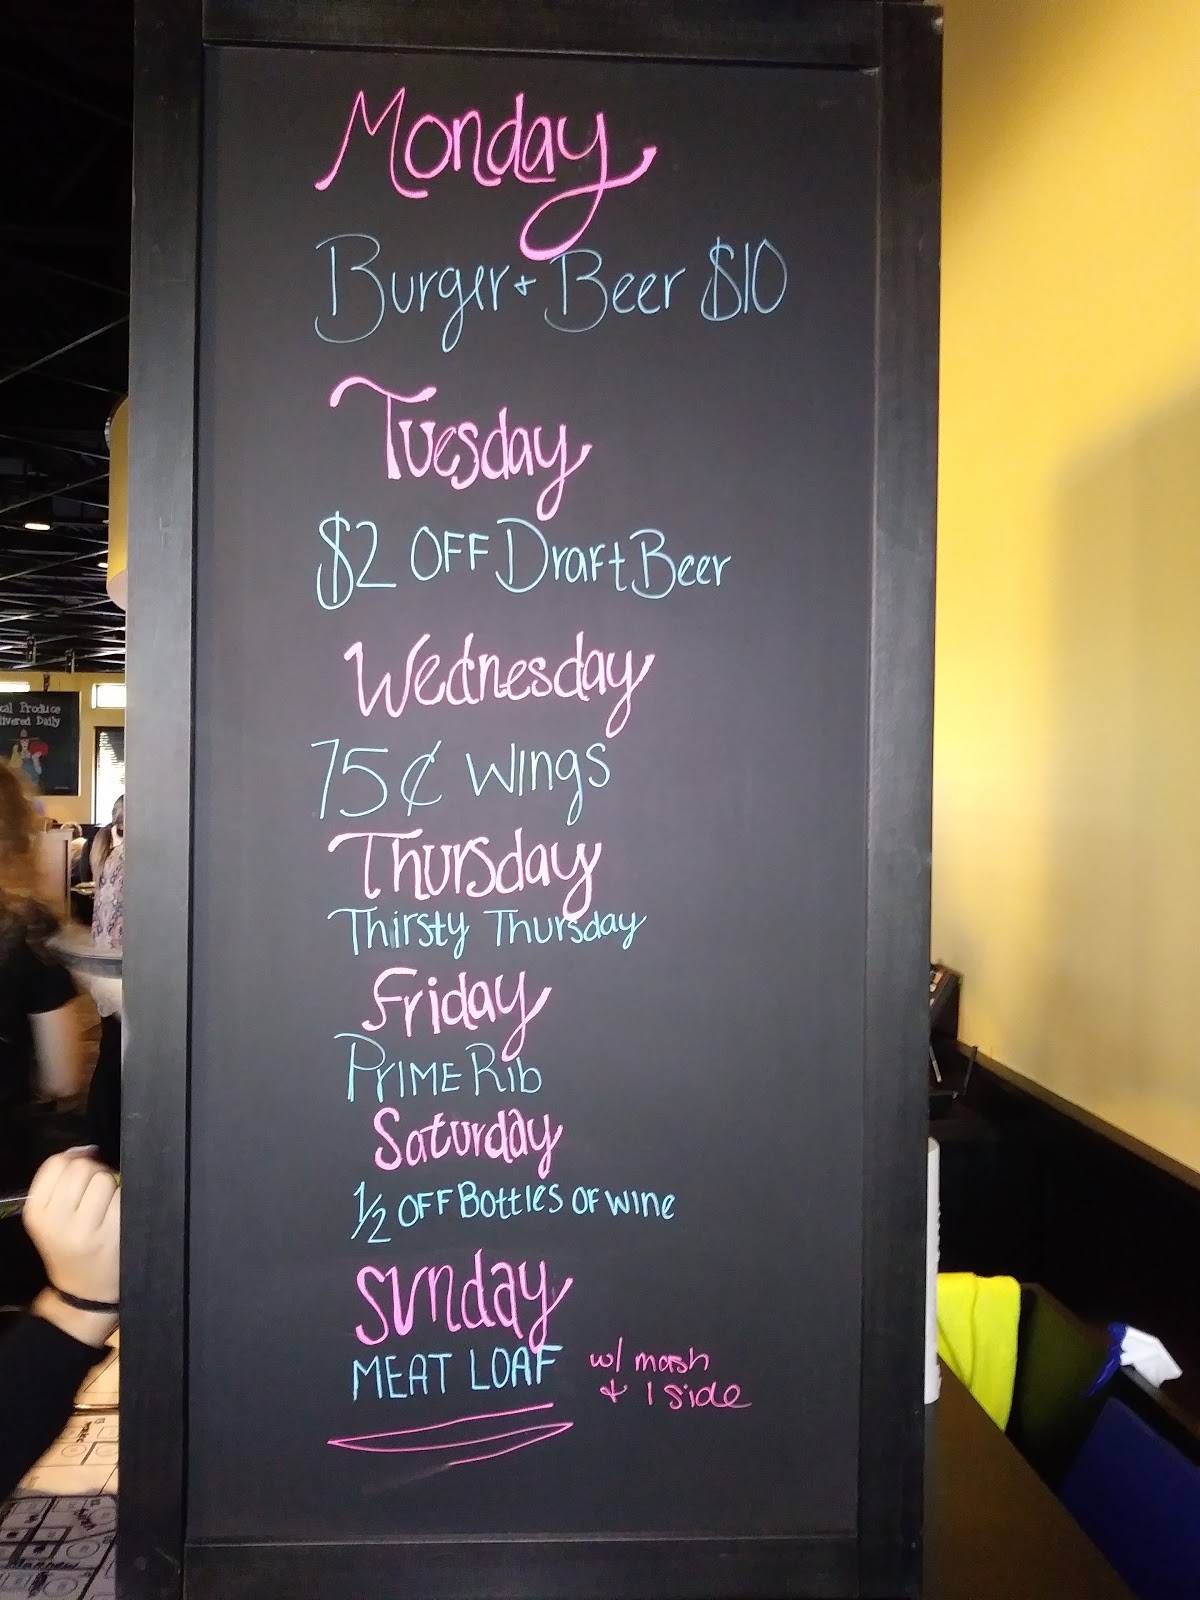 Monday
Burger + Beer $10
Tuesday
$2 OFF Draft Beer
Wednesday
75¢ Wings
Thursday
Thirsty Thursday
Friday
Prime Rib
Saturday
1/2 OFF Bottles of wine
Sunday
MEAT LOAF w/ mash
+ 1 side
Produce
Daily